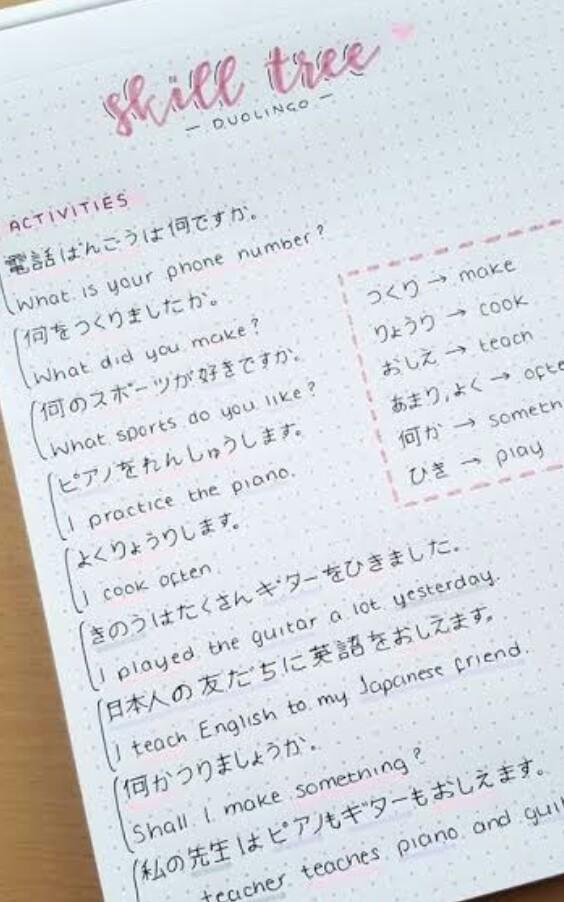 skill tree
- DUOLINGO -
ACTIVITIES
電話ばんごうは何ですか。
What is your phone number?
何をつくりましたか。
What did you make?
何のスポーツが好きですか。
What sports do you like?
ピアノをれんしゅうします。
I practice the piano.
よくりょうりします。
I cook often
きのうはたくさんギターをひきました。
I played the guitar a lot yesterday.
日本人の友だちに英語をおしえます。
I teach English to my Japanese friend.
何かつりましょうか。
Shall I make something?
私の先生はピアノもギターもおしえます。
teacher teaches piano and
つくり → make
りょうり → cook
おしえ → teach
あまり,よく →
何か →
ひき → play